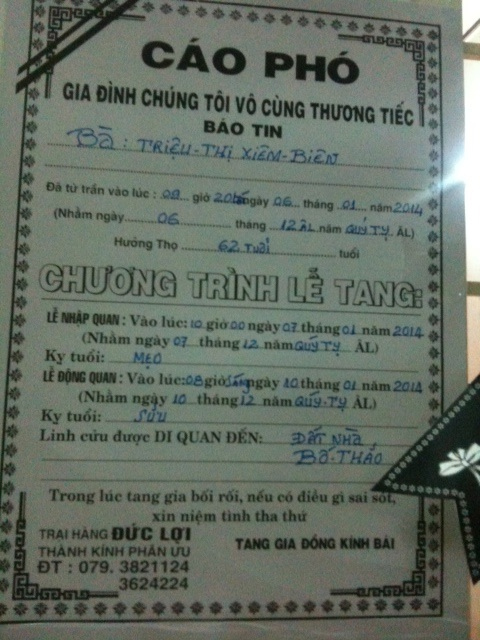 CÁO PHÓ
GIA ĐÌNH CHÚNG TÔI VÔ CÙNG THƯƠNG TIẾC
BÁO TIN
Bà : TRIỆU - THỊ XIÊM - BIÊN
Đã từ trần vào lúc : 08 giờ 20 ngày 06 tháng 01 năm 2014
(Nhằm ngày 06 tháng 12 ÂL năm QUÝ TỴ ÂL)
Hưởng Thọ 62 TUỔI tuổi
CHƯƠNG TRÌNH LỄ TANG:
LỄ NHẬP QUAN : Vào lúc: 10 giờ 00 ngày 07 tháng 01 năm 2014
(Nhằm ngày 07 tháng 12 năm QUÝ TỴ ÂL)
Kỵ tuổi: MẸO
LỄ ĐỘNG QUAN : Vào lúc: 08 giờ SÁNG ngày 10 tháng 01 năm 2014
(Nhằm ngày 10 tháng 12 năm QUÝ - TỴ ÂL)
Kỵ tuổi: SỬU
Linh cửu được DI QUAN ĐẾN: ĐẤT NHÀ
BỐ - THẢO
Trong lúc tang gia bối rối, nếu có điều gì sai sót,
xin niệm tình tha thứ
TRẠI HÀNG ĐỨC LỢI
THÀNH KÍNH PHÂN ƯU
TANG GIA ĐỒNG KÍNH BÁI
ĐT : 079. 3821124
3624224